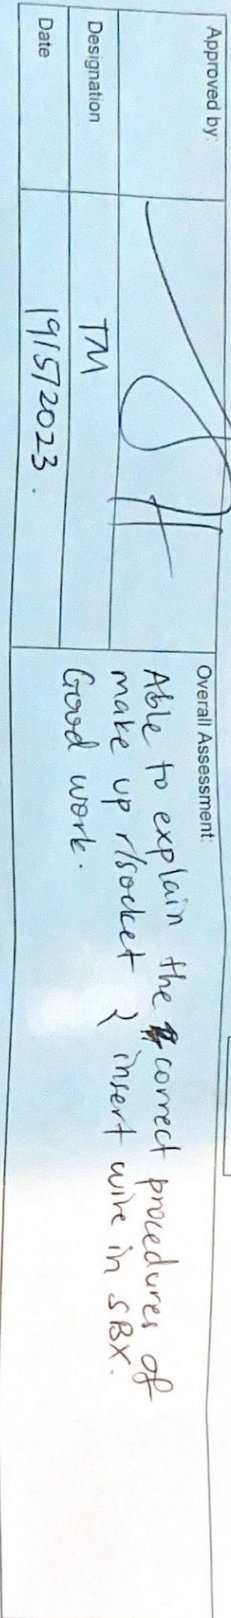 Approved by:
Designation
TM
Date
19/5/2023.
Overall Assessment:
Able to explain the correct procedures of
make up r/socket & insert wire in SBX.
Good work.